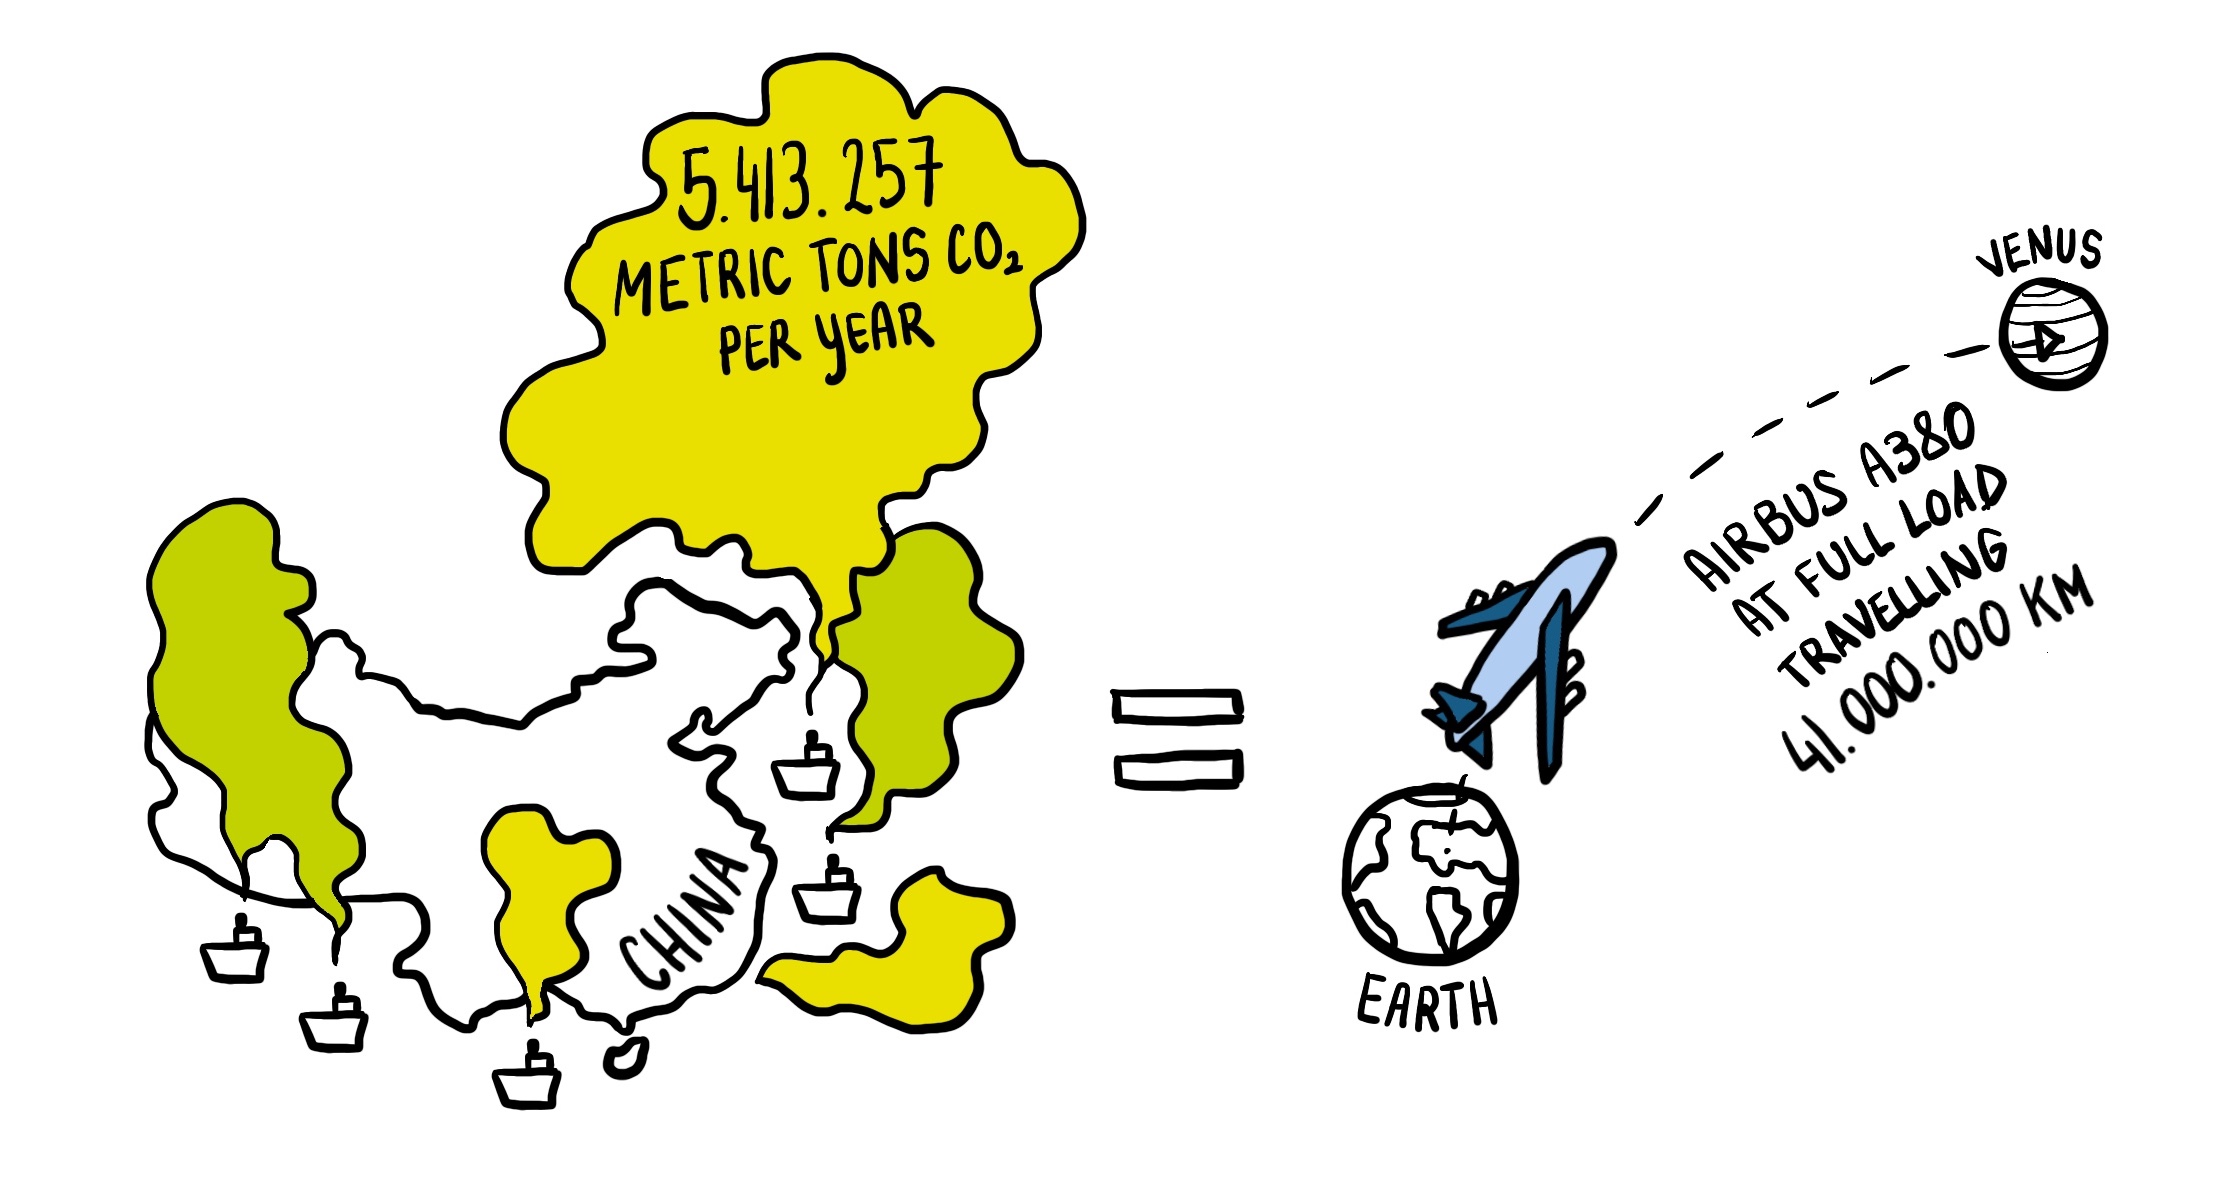 5.413.257
METRIC TONS CO₂
PER YEAR
CHINA
VENUS
AIRBUS A380
AT FULL LOAD
TRAVELLING
41.000.000 KM
EARTH